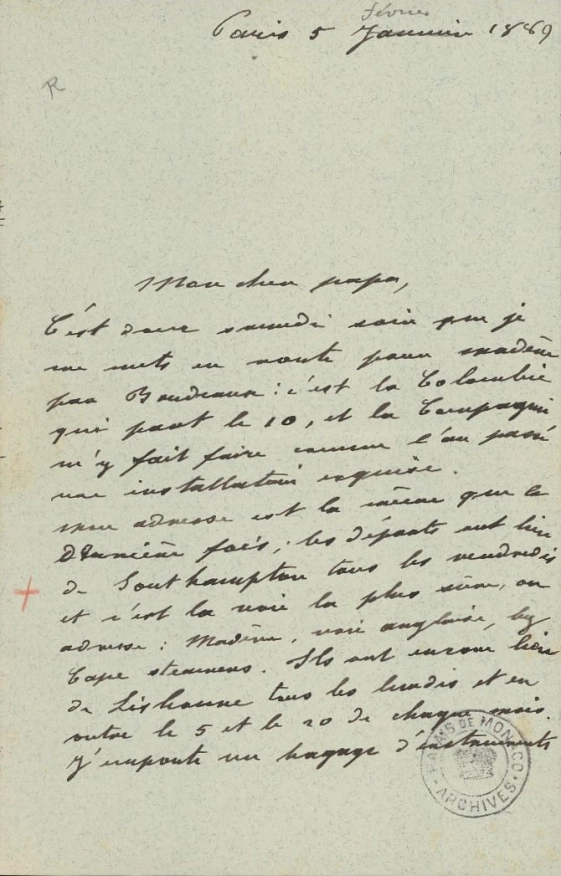 février
Paris 5 Janvier 1889
R
Mon cher papa,
C'est donc samedi soir que je
me mets en route pour madère
par Bordeaux : c'est la Colombie
qui part le 10, et la Compagnie
m'y fait faire comme l'an passé
une installation exquise.
mon adresse est la même que la
dernière fois ; les départs ont lieu
de Southampton tous les vendredis
et c'est la voie la plus sûre, on
adresse : Madère, voie anglaise, by
Cape steamers. Ils ont encore lieu
de Lisbonne tous les lundis et en
outre le 5 et le 20 de chaque mois.
J'emporte un bagage d'instruments
PALAIS DE MONACO
ARCHIVES